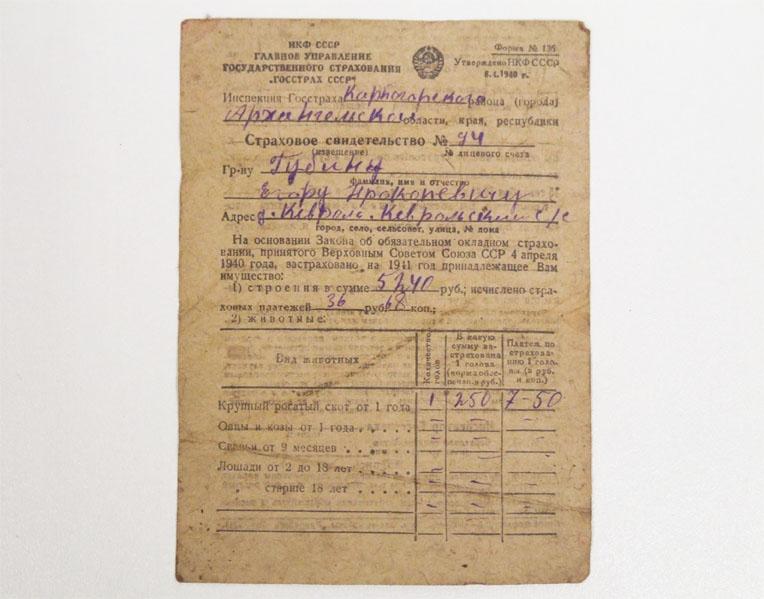 НКФ СССР
ГЛАВНОЕ УПРАВЛЕНИЕ
ГОСУДАРСТВЕННОГО СТРАХОВАНИЯ
„ГОССТРАХ СССР“
Форма № 136
Утверждено НКФ СССР
8.I.1940 г.
Инспекция Госстраха Карпогорского района (города)
Архангельской области, края, республики
Страховое свидетельство № 94
(извещение) № лицевого счета
Гр-ну Губину
фамилия, имя и отчество
Егору Прокопевичу
Адрес д. Кеврола Кеврольский с/с
город, село, сельсовет, улица, № дома
На основании Закона об обязательном окладном страхо-
вании, принятого Верховным Советом Союза ССР 4 апреля
1940 года, застраховано на 1941 год принадлежащее Вам
имущество:
1) строения в сумме 5240 руб.; исчислено стра-
ховых платежей 36 руб. 68 коп.;
2) животные:
Вид животных
Количество голов
В какую сумму застрахована 1 голова (норма обеспечения в руб.)
Платеж по страхованию 1 головы (в руб. и коп.)
Крупный рогатый скот от 1 года 1 250 7-50
Овцы и козы от 1 года . . . . .
Свиньи от 9 месяцев . . . . .
Лошади от 2 до 18 лет . . . . .
„ старше 18 лет . . . . .